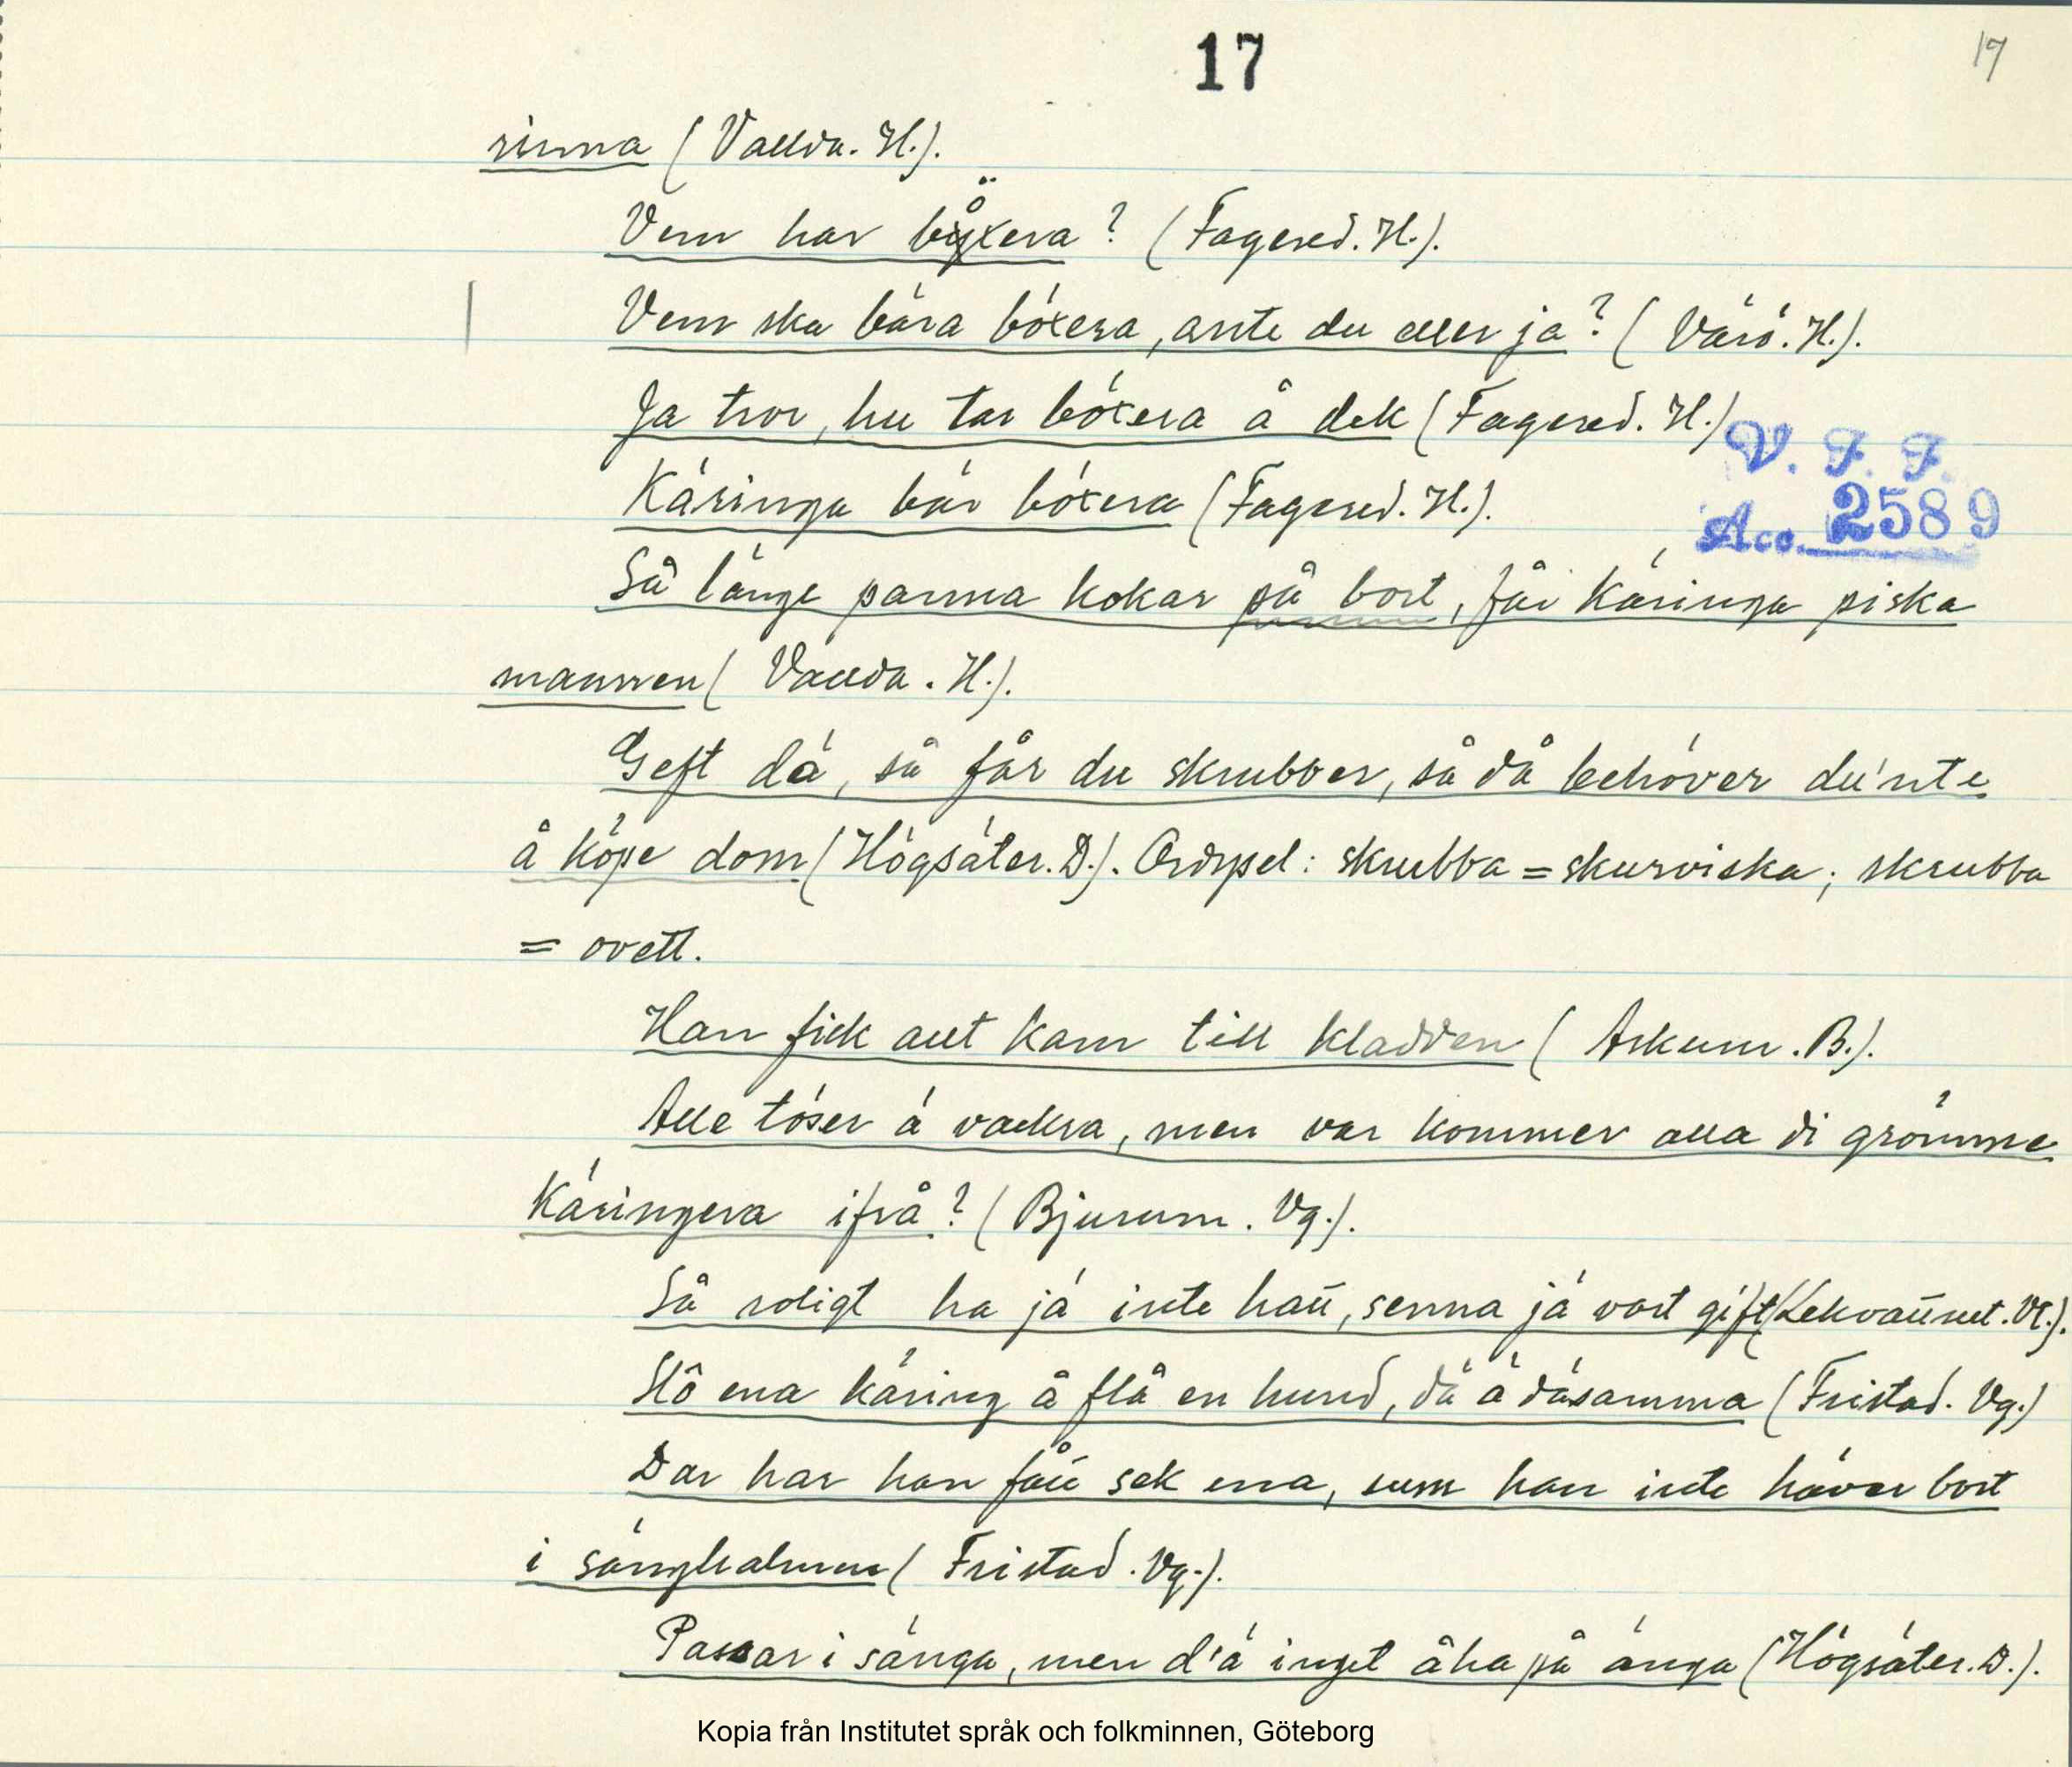 17
17
rinna (Vallda. H.).
Vem har böxera? (Fagered. H.).
Vem ska bära böxera, ante du eller ja? (Värö. H.).
Ja tror, hu tar böxera å dek (Fagered. H.)
V. F. F.
Acc. 2589
Käringa bär böxera (Fagered. H.).
Så länge panna kokar på bort, får käringa piska
mannen (Vallda. H.).
Geft dä, så får du skrubber, så då behöver du'nte
å köpe dom (Högsäter. D.). Ordspel: skrubba = skurviska; skrubba
= ovett.
Han fick allt kam till kladden (Askum. B.).
Alle töser ä vackra, men var kommer alla di grömme
käringera ifrå? (Bjurum. Vg.).
Så roligt ha jä inte haü, senna jä vort gift (Lekvattnet. Vl.).
Slå ena käring å flå en hund, dä ä däsamma (Fristad. Vg.)
Dar har han fåü sek ena, sum han inte häver bort
i sänghalmen (Fristad. Vg.).
Passar i sänga, men d'ä inget å ha på änga (Högsäter. D.).
Kopia från Institutet språk och folkminnen, Göteborg